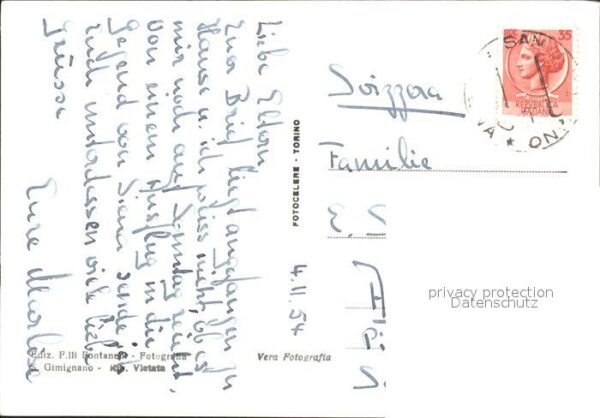 Liebe Eltern
Zwar Brief liegt angefangen zu
Hause u. ich weiss nicht, ob es
mir noch auf Sonntag reicht.
Von einem Ausflug in die
Gegend von Siena sende ich
Euch unterdessen viele liebe
Grüsse
Eure
4.11.54
FOTOCELERE - TORINO
Ediz. F.lli Fontanelli - Fotografia
S. Gimignano - Rip. Vietata
Vera Fotografia
Svizzera
Familie
E. S
LIRE 35
REPVBBLICA
ITALIANA
SAN
privacy protection
Datenschutz